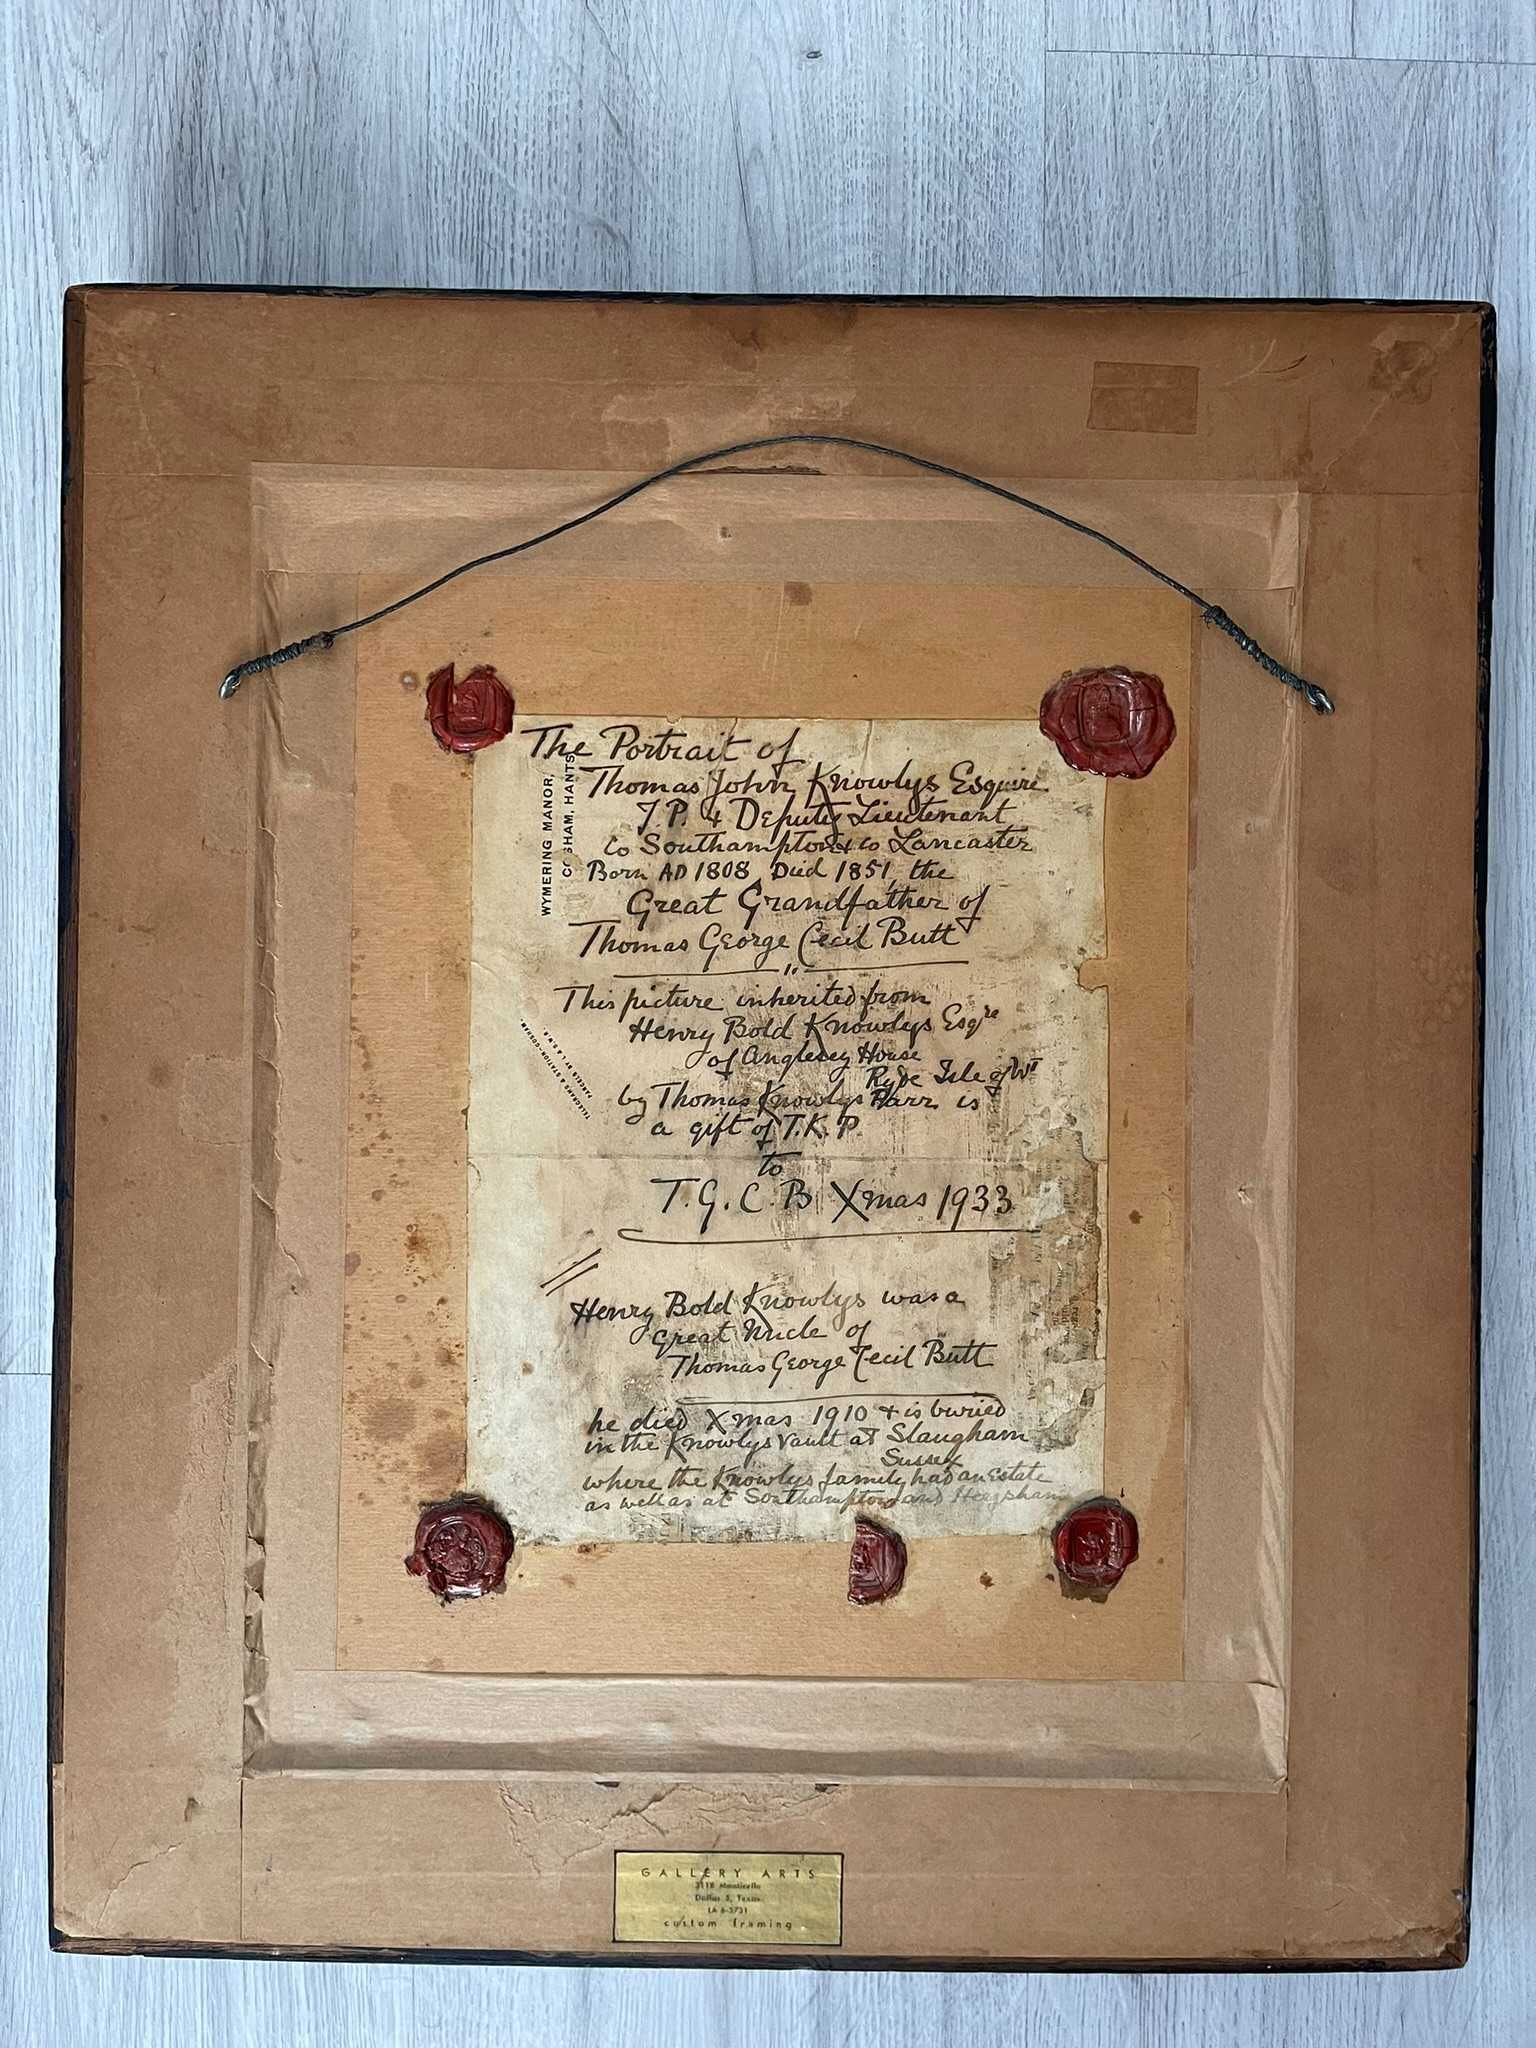 The Portrait of
Thomas John Knowlys Esquire
J.P. & Deputy Lieutenant
co Southampton & co Lancaster
Born AD 1808, Died 1851, the
Great Grandfather of
Thomas George Cecil Butt
WYMERING MANOR,
COSHAM, HANTS
This picture inherited from
Henry Bold Knowlys Esqre
of Anglesey House
Ryde Isle of Wt
by Thomas Knowlys Parr is
a gift of T.K.P.
to
T.G.C.B Xmas 1933
TELEGRAMS & STATION-COSHAM.
PARCELS BY L.& S.W.R.
Henry Bold Knowlys was a
Great Uncle of
Thomas George Cecil Butt
he died Xmas 1910 & is buried
in the Knowlys vault at Slaugham
Sussex
where the Knowlys family had an Estate
as well as at Southampton and Heysham
GALLERY ARTS
3118 Monticello
Dallas 5, Texas
LA 6-3731
custom framing